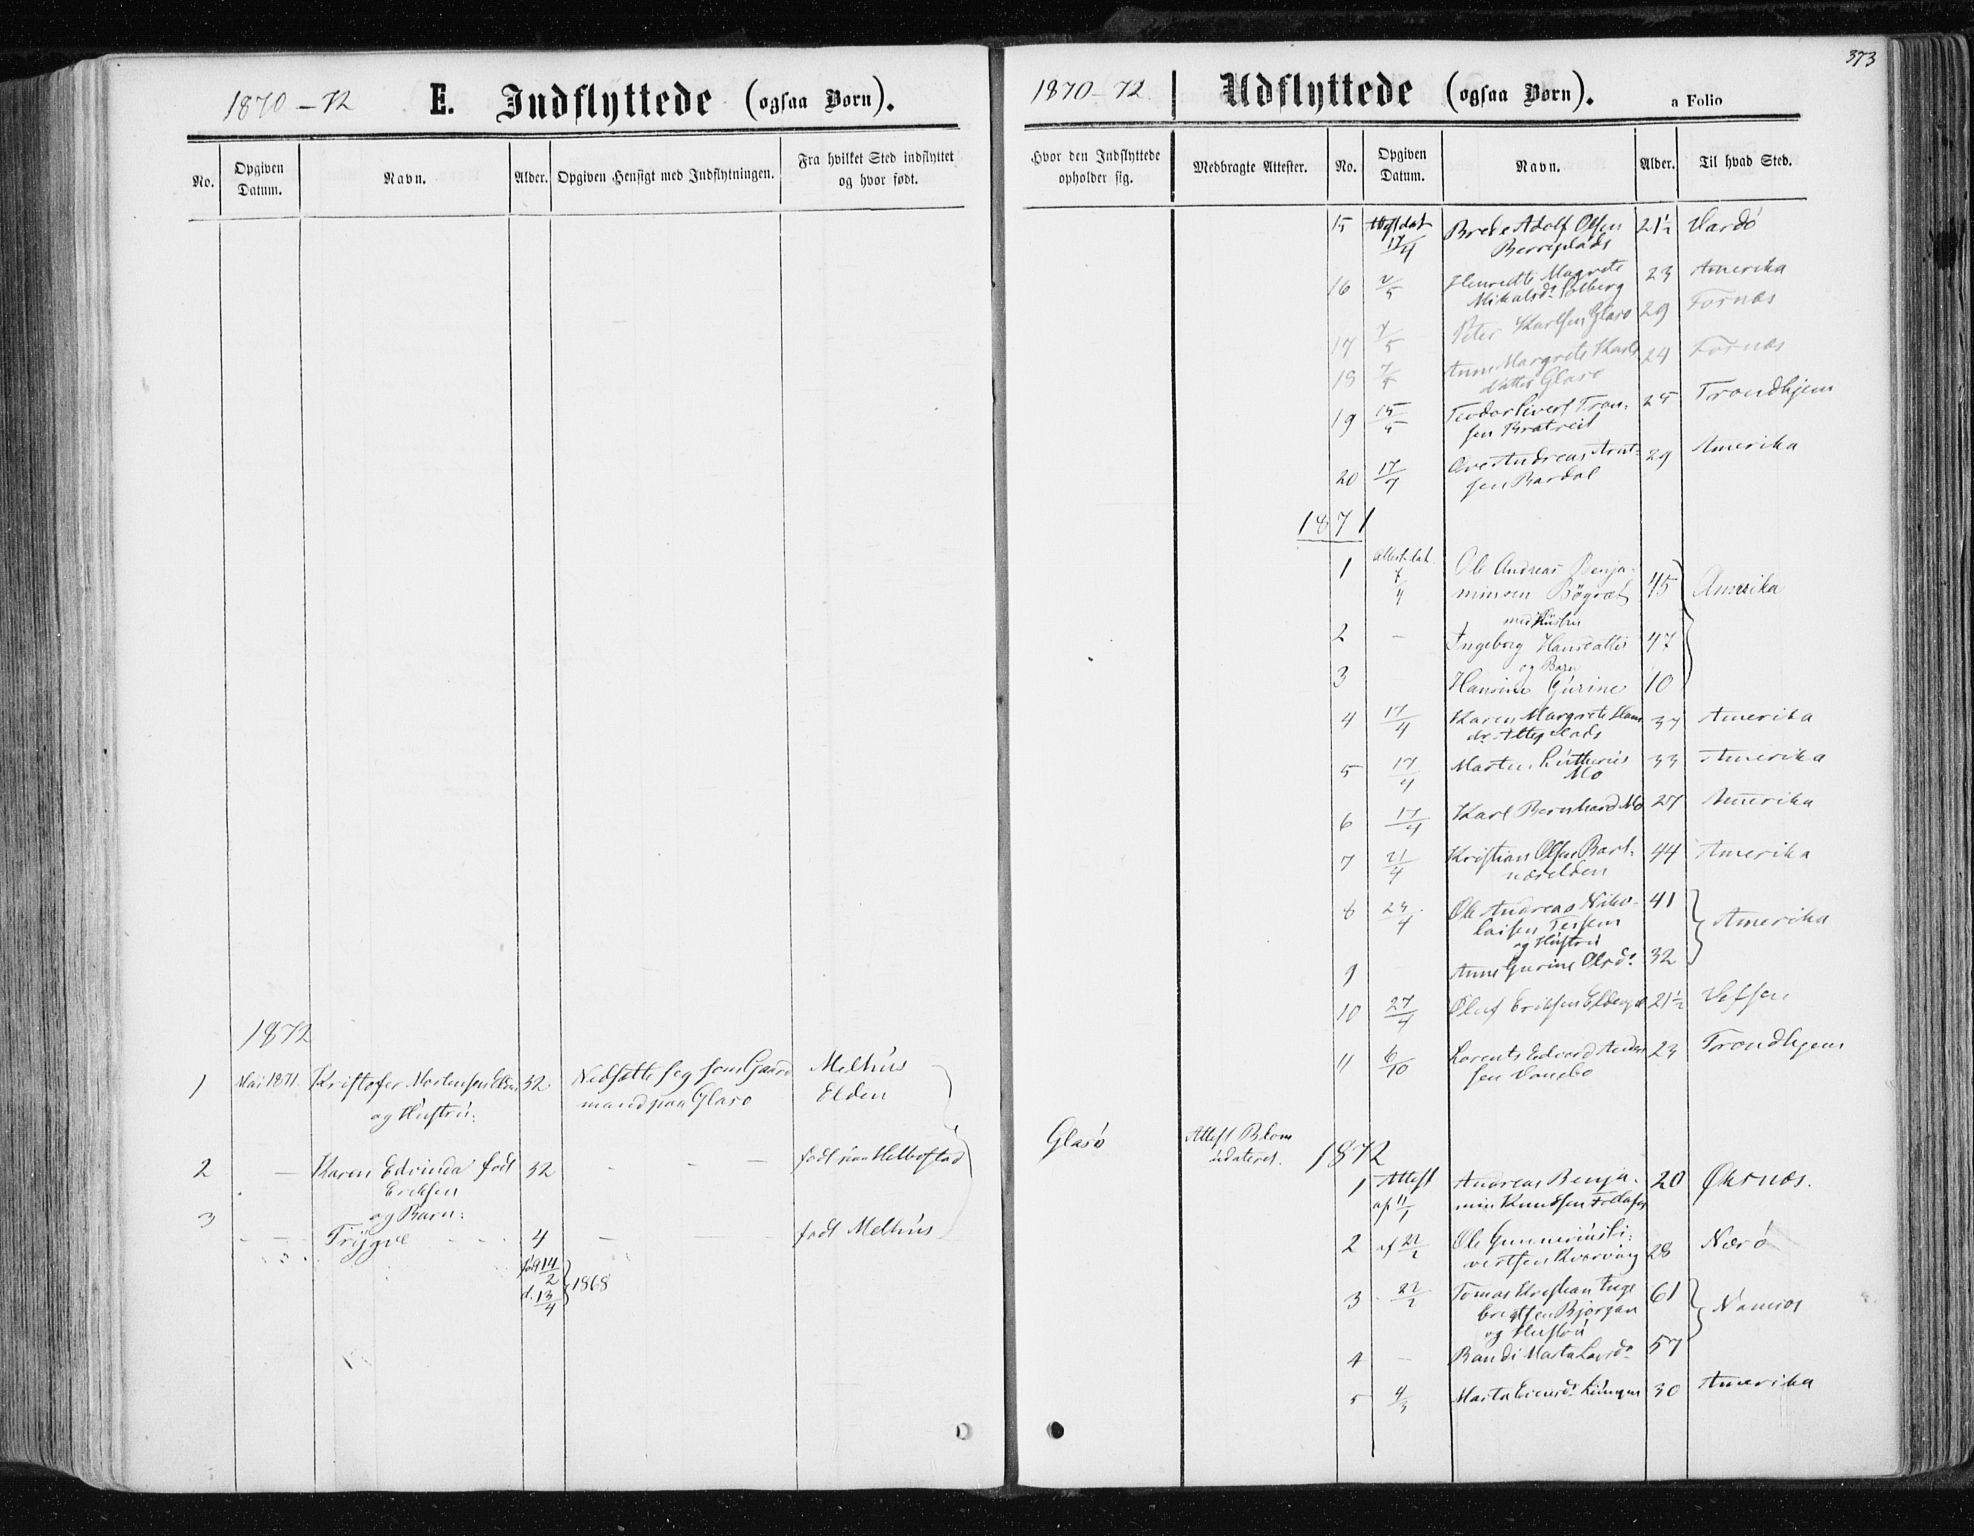 1870-72 E. Indflyttede (ogsaa Børn).
No. Opgiven Datum. Navn. Alder. Opgiven Hensigt med Indflytningen. Fra hvilket Sted indflyttet og hvor født.
1872
1 Mai 1871. Kristofer Mortensen 32 Nedsætte seg som Gaard Melhus
og Hustru: mand paa Glasø Elden
2 — Karen Edvinda født 32 — — — født paa Helbostad
Eriksen
og Barn:
3 — — Trygve 4 — — født Melhus
født 14/2
d. 13/4 1868
373
1870-72. Udflyttede (ogsaa Børn). a Folio
Hvor den Indflyttede opholder sig. Medbragte Attester. No. Opgiven Datum. Navn. Alder. Til hvad Sted.
15 17/4 Brede Adolf Olsen 21½ Vardø
16 2/5 Henrette Magrete 23 Amerika
Mikalsd. Solberg
17 7/5 Peter Karlsen Glasø 29 Fosnæs
18 7/5 Anne Margrete Karls 24 Fosnæs
datter Glasø
19 15/5 Teodor Sivert Tron- 25 Trondhjem
sen Bratreit
20 17/7 Ove Andreas Arnt- 29 Amerika
sen Bardal
1871
1 Attest dat. Ole Andreas Benja-
7/4 minsen Bøgset 45 Amerika
med Hustru
2 — Ingeborg Hansdatter 47
og Barn
3 Hansine Gurine 10
4 17/4 Karen Margrete Hans 37 Amerika
5 17/4 Morten Lutherus 33 Amerika
Mo
6 17/4 Karl Bernhard Mo 27 Amerika
7 21/4 Kristian Olsen Bart- 44 Amerika
næselden
8 24/4 Ole Andreas Niko- 41
laisen Tessem Amerika
og Hustru
9 Anne Gurine Olsd. 32
10 27/4 Oluf Eriksen 21½ Vefsen
11 6/10 Lorents Edvard Anders 23 Trondhjem
sen
Glasø Attest Blom
udateret. 1872
1 Attest Andreas Benja- 20 Øksnæs.
af 11/1 min Knudsen
2 af 22/2 Ole Gunnerius Si-
vertsen Kvarving 28 Nærø
3 22/2 Tomas Kristian Inge 61
brigtsen Bjørgan Namsos
og Hustru
4 — Randi Marta Larsd. 57
5 4/3 Marta 30 Amerika